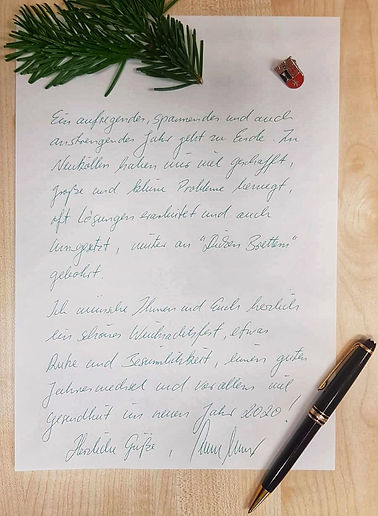 Ein aufregendes, spannendes und auch
anstrengendes Jahr geht zu Ende. In
Neukölln haben wir viel geschafft,
große und kleine Probleme bewegt,
oft Lösungen erarbeitet und auch
umgesetzt, munter an "dicken Brettern"
gebohrt.
Ich wünsche Ihnen und Euch herzlich
ein schönes Weihnachtsfest, etwas
Ruhe und Besinnlichkeit, einen guten
Jahreswechsel und vor allem viel
Gesundheit im neuen Jahr 2020!
Herzliche Grüße,